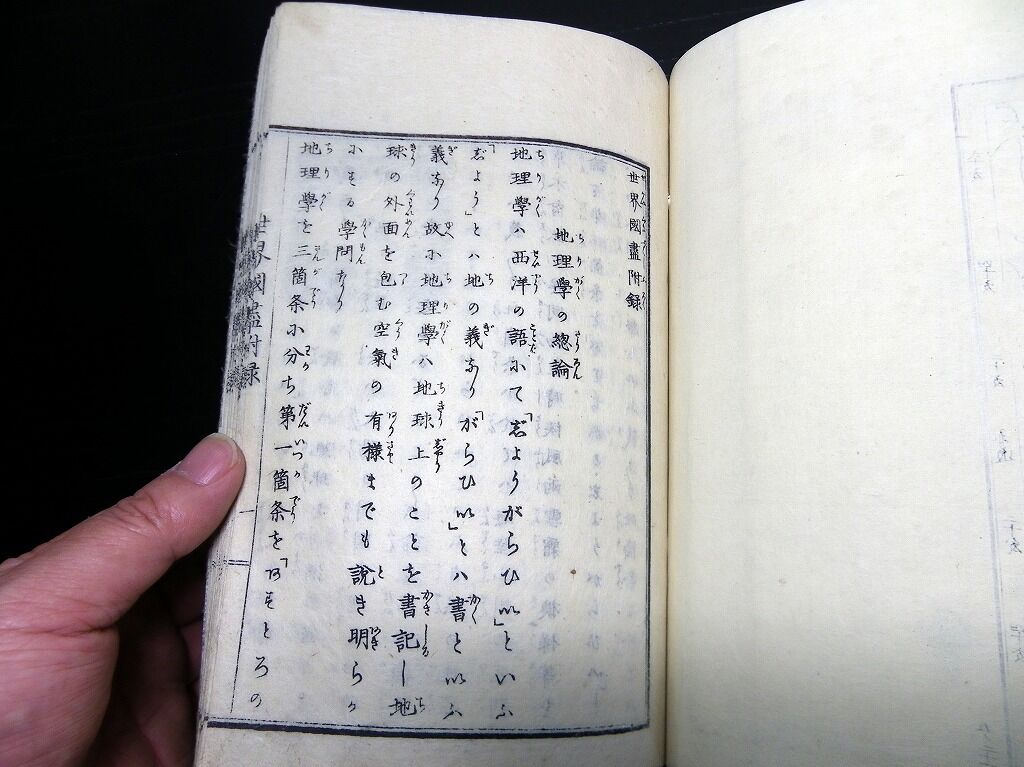 世界國盡附録
地理學の總論
地理學ハ西洋の語にて「志゛ようがらひい」といふ
「志゛よう」とハ地の義なり「がらひい」とハ書といふ
義なり故に地理學ハ地球上のことを書記し地
球の外面を包む空氣の有樣までも説き明らか
にする學問なり
地理學を三箇条に分ち第一箇条を「あすとろの
世界國盡附録
一